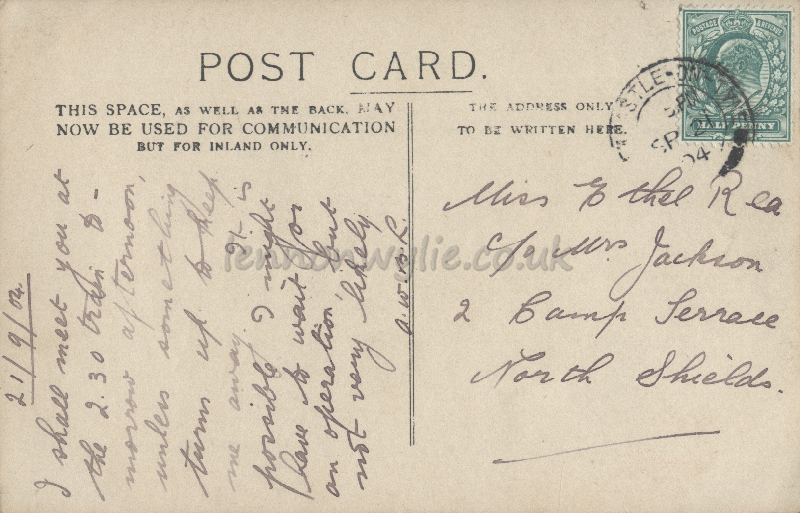 POST CARD.
THIS SPACE, AS WELL AS THE BACK, MAY
NOW BE USED FOR COMMUNICATION
BUT FOR INLAND ONLY.
THE ADDRESS ONLY
TO BE WRITTEN HERE.
POSTAGE & REVENUE
HALF PENNY
STLE-ON-TYNE
SP 21
04
21/9/04
I shall meet you at
the 2.30 train to-
morrow afternoon,
unless something
turns up to keep
me away. It is
possible I might
have to wait for
an operation, but
not very likely
A.W.M.R.
Miss Ethel Rea
c/o Mrs Jackson
2 Camp Terrace
North Shields.
lennonwylie.co.uk